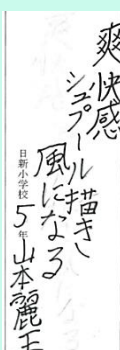 爽快感
シュプール描き
風になる
日新小学校5年山本麗王